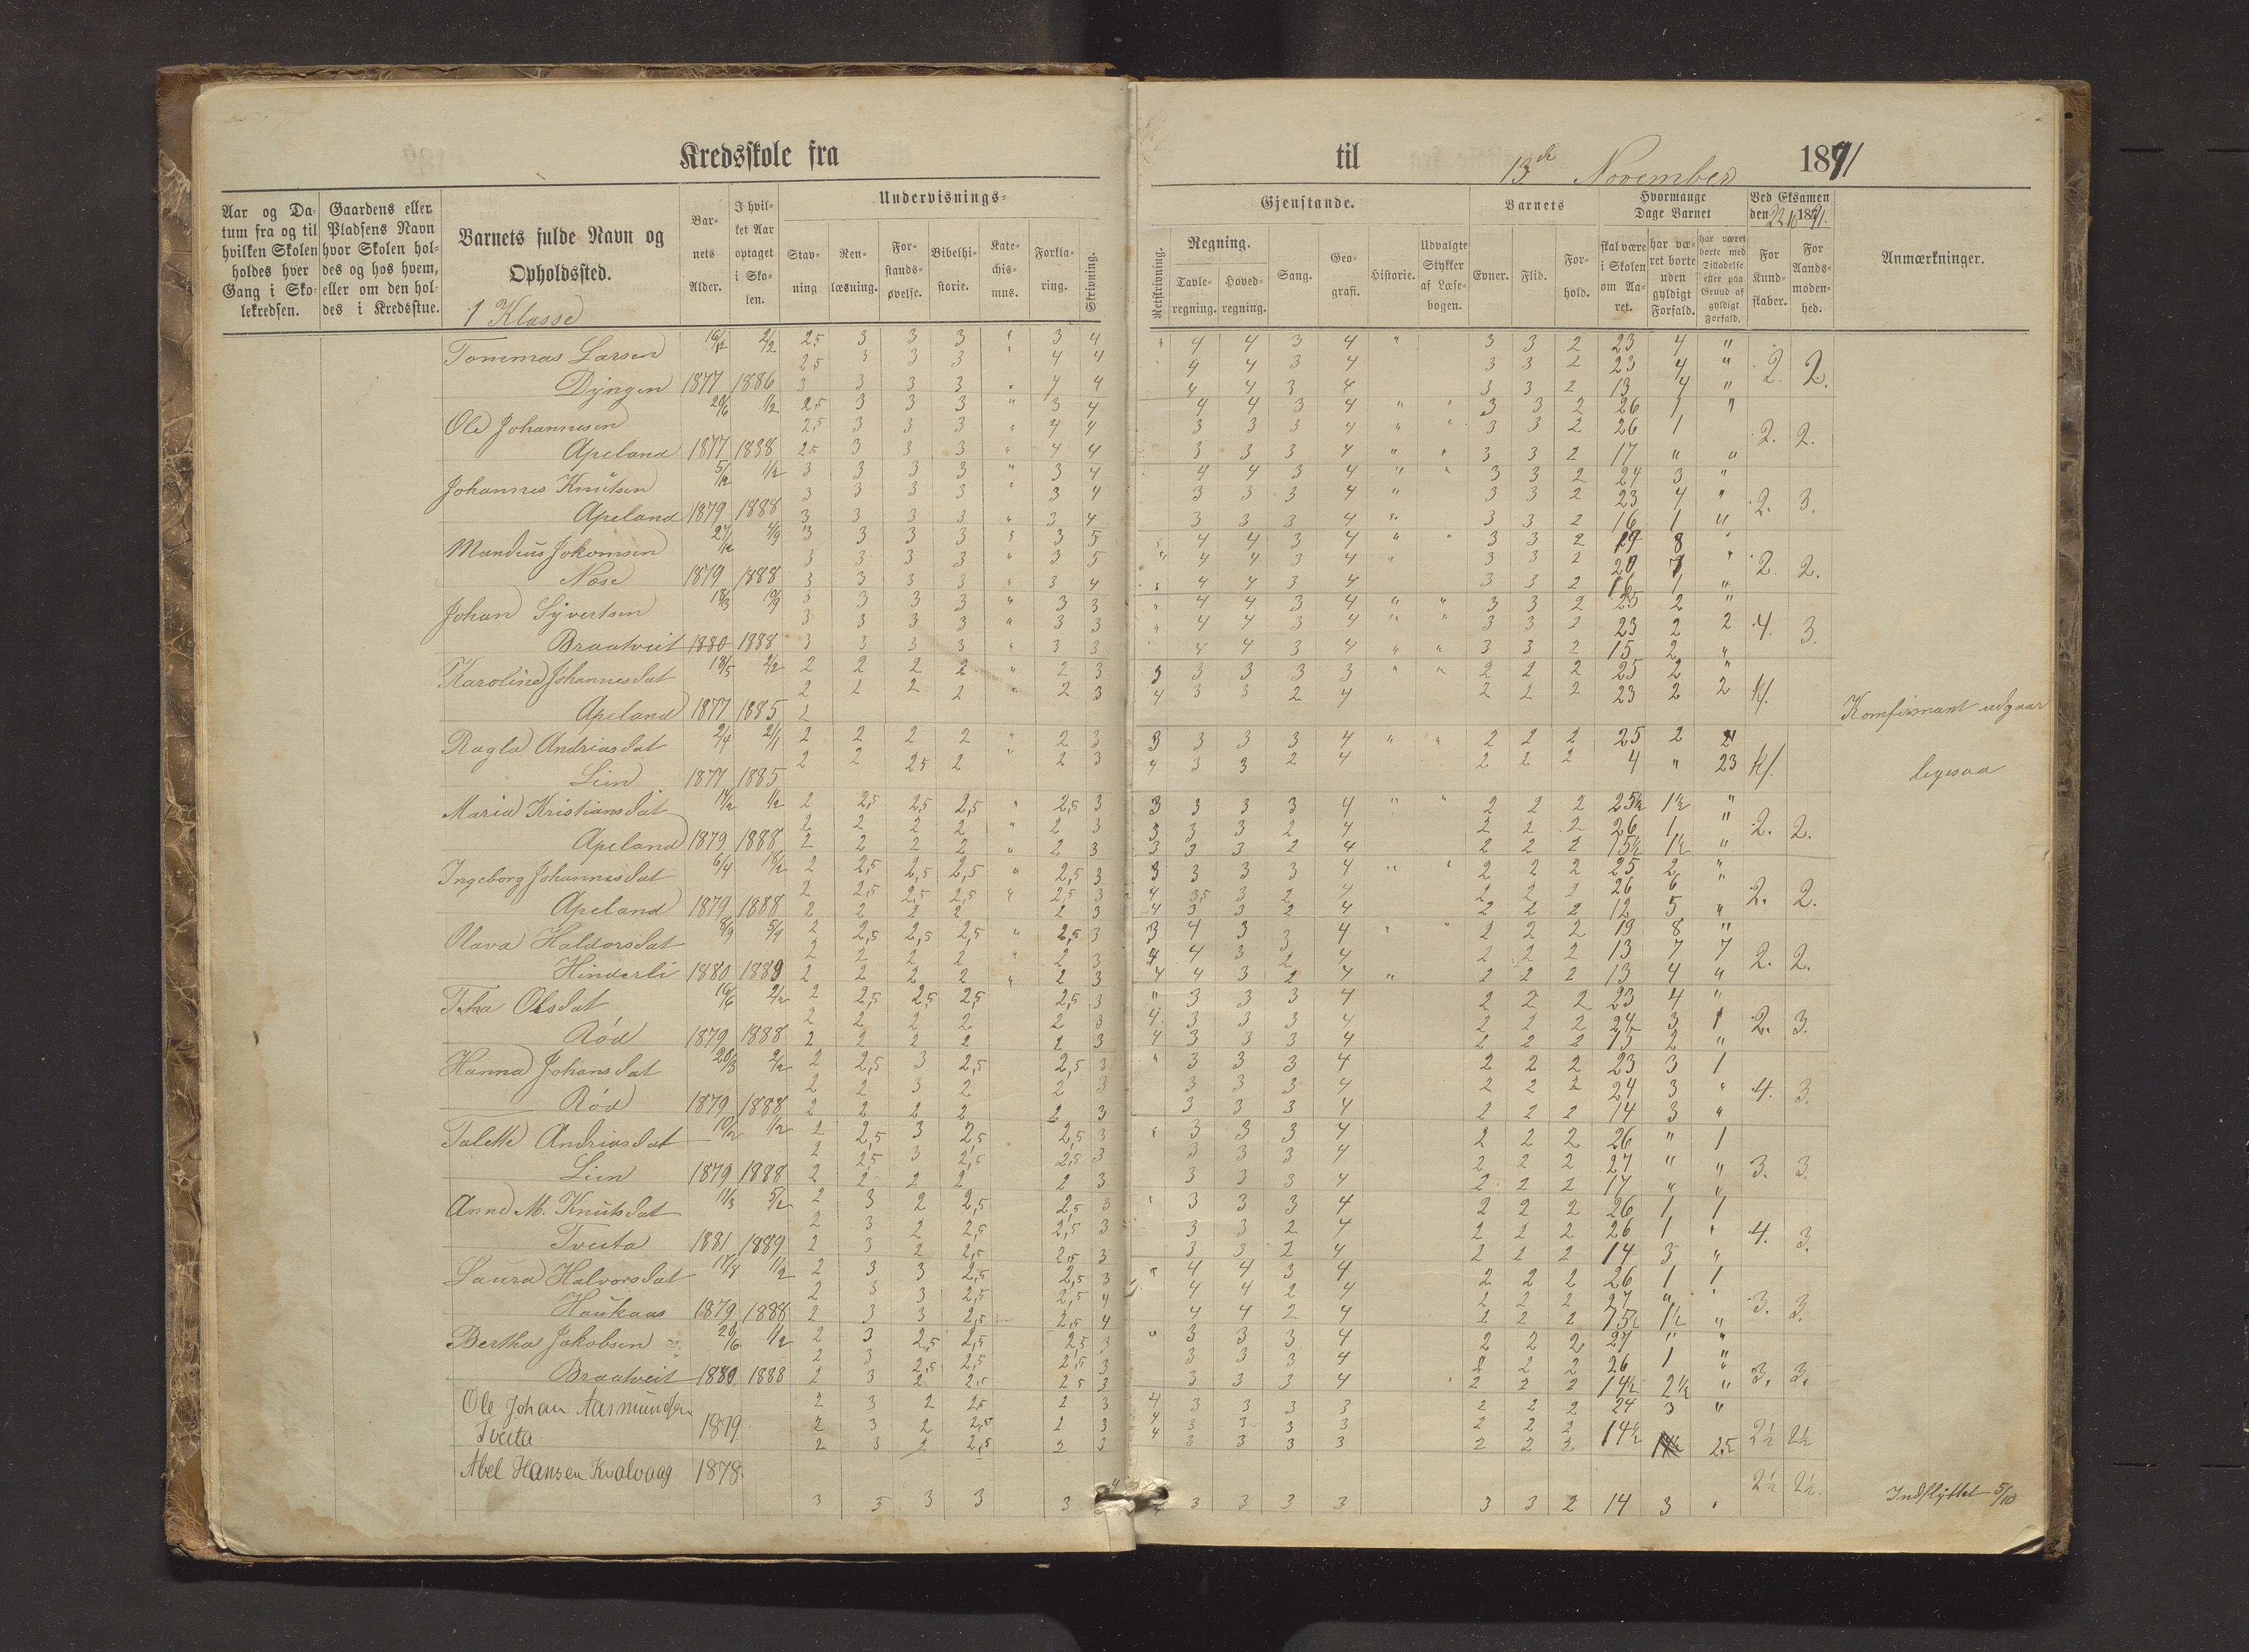 Kredsskole fra
til 13de November 1891
Aar og Da-
tum fra og til
hvilken Skolen
holdes hver
Gang i Sko-
lekredsen.
Gaardens eller
Pladsens Navn
hvor Skolen hol-
des og hos hvem,
eller om den hol-
des i Kredsstue.
Barnets fulde Navn og
Opholdssted.
1 Klasse
Bar-
nets
Alder.
I hvil-
ket Aar
optaget
i Sko-
len.
Undervisnings-
Stav-
ning
Ren-
læsning.
For-
stands-
øvelse.
Bibelhi-
storie.
Kate-
chis-
mus.
Forkla-
ring.
Skrivning.
Gjenstande.
Retskrivning.
Regning.
Tavle-
regning.
Hoved-
regning.
Sang.
Geo-
grafi.
Historie.
Udvalgte
Stykker
af Læse-
bogen.
Barnets
Evner.
Flid.
For-
hold.
Hvormange
Dage Barnet
skal være
i Skolen
om Aa-
ret.
har væ-
ret borte
uden
gyldigt
Forfald.
har været
borte med
Tilladelse
eller paa
Grund af
gyldigt
Forfald.
Ved Eksamen
den 23/10 1891.
For
Kund-
skaber.
For
Aands-
moden-
hed.
Anmærkninger.
Tommas Larsen 16/12 2/2 2,5 3 3 3 " 3 4 " 4 4 3 4 " 3 3 2 23 4 "
2,5 3 3 3 " 4 4 4 4 3 4 3 3 2 23 4 " 2. 2.
Dyngen 1877 1886 3 3 3 3 " 4 4 4 4 3 4 3 3 2 13 4 "
Ole Johannesen 20/6 1/2 2,5 3 3 3 " 3 4 4 4 3 4 " " 3 3 2 26 1 "
2,5 3 3 3 " 4 4 3 3 3 4 " " 3 3 2 26 1 2. 2.
Apeland 1877 1888 2,5 3 3 3 " 4 4 3 3 3 4 " " 3 3 2 17 " "
Johannes Knutsen 5/12 1/2 3 3 3 3 " 3 4 4 4 3 4 " " 3 3 2 24 3 "
3 3 3 3 " 3 4 3 3 3 4 " 3 3 2 23 4 " 2. 3.
Apeland 1879 1888 3 3 3 3 " 3 4 3 3 3 4 " 3 3 2 16 1 "
Mandius Jokomsen 27/12 4/9 3 3 3 3 " 3 5 " 4 4 3 4 " " 3 3 2 19 8 "
3 3 3 3 " 3 5 " 4 4 3 4 " 3 3 2 20 7 " 2. 2.
Næse 1879 1888 3 3 3 3 " 3 4 " 4 4 3 4 3 3 2 16 1 "
Johan Syvertsen 18/3 10/9 3 3 3 3 " 3 3 " 4 4 3 4 " " 3 3 2 25 2 "
3 3 3 3 " 3 3 " 4 4 3 4 " " 3 3 2 23 2 2 4. 3.
Braatveit 1880 1888 3 3 3 3 " 3 3 4 4 3 4 " " 3 3 2 15 2 "
Karoline Johannesdat 18/5 2/2 2 2 2 2 " 2 3 3 3 3 3 3 " " 2 2 2 25 2 "
2 2 2 2 " 2 3 4 3 3 2 4 2 2 2 23 2 2 k/.
Apeland 1877 1885 2 Komfirmant udgaar
Ragla Andriasdat 2/4 2/1 2 2 2 2 " 2 3 3 3 3 3 4 " " 2 2 2 25 2 2
2 2 2,5 2 " 2 3 4 3 3 2 4 2 2 2 4 " 23 k/. ligesaa
Lien 1877 1885
Maria Kristiansdat 14/2 1/2 2 2,5 2,5 2,5 " 2,5 3 3 3 3 3 4 " " 2 2 2 25½ 1½ "
2 2 2 2 " 2 3 3 3 3 2 4 2 2 2 26 1 " 2. 2.
Apeland 1879 1888 2 2 2 2 " 2 3 3 3 3 2 4 2 2 2 15½ 1½ "
Ingeborg Johannesdat 6/4 18/2 2 2,5 2,5 2,5 " 2,5 3 3 3 3 3 4 " " 2 2 2 25 2 "
2 2,5 2,5 2,5 " 2,5 3 4 3,5 3 2 4 2 2 2 26 6 " 2. 2.
Apeland 1879 1888 2 2 2 2 2 3 4 3 3 2 4 2 2 2 12 5 "
Olava Haldorsdat 8/9 5/4 2 2,5 2,5 2,5 " 2,5 3 3 4 3 3 4 " " 2 2 2 19 8 "
2 2 2 2 " 2 3 4 4 3 2 4 2 2 2 13 7 7 2. 2.
Hinderli 1880 1889 2 2 2 2 " 2 3 4 4 3 2 4 " 2 2 2 13 4 "
Olsdat 16/6 2/2 2 2,5 2,5 2,5 2,5 3 " 3 3 3 4 2 2 2 23 4 "
2 2 2 2 2 3 4 3 3 3 4 2 2 2 24 3 1 2. 3.
Rød 1879 1888 2 2 2 2 2 3 4 3 3 3 4 2 2 2 15 2 "
Hanna Johansdat 20/3 2/2 2 2,5 3 2,5 2,5 3 " 3 3 3 4 2 2 2 23 3 1
2 2 3 2 2 3 3 3 3 4 2 2 2 24 3 " 4. 3.
Rød 1879 1888 2 2 2 2 2 3 3 3 3 4 2 2 2 14 3 "
Talette Andriasdat 10/12 1/2 2 2,5 3 2,5 2,5 3 " 3 3 3 4 2 2 2 26 " 1
2 2,5 3 2,5 2,5 3 3 3 3 4 2 2 2 27 " " 3. 3.
Lien 1879 1888 2 2 2 2 2 3 3 3 3 4 2 2 2 17 " "
Anne M. Knutsdat 11/3 5/2 2 3 2 2,5 2,5 3 " 3 3 3 4 2 2 2 26 1 1
2 3 2 2,5 2,5 3 3 3 2 4 2 2 2 26 1 " 4. 3.
Tveita 1881 1889 2 3 2 2,5 2,5 3 3 3 2 4 2 2 2 14 3 "
Laura Halvorsdat 17/8 11/2 2 3 3 2,5 2,5 3 " 4 4 3 4 2 2 2 26 1 1
2 3 3 2,5 2,5 4 4 4 2 4 2 2 2 27 " " 3. 3.
Haukaas 1879 1888 2 3 3 2,5 2,5 4 4 4 2 4 2 2 2 15½ 1½ "
Bertha Jakobsen 20/6 1/2 2 3 2,5 2,5 2,5 3 " 3 3 3 4 2 2 2 27 " "
2 3 2,5 2,5 2,5 3 3 3 3 4 2 2 2 26 1 " 3. 3.
Braatveit 1880 1888 2 3 2 2,5 2,5 3 3 3 3 4 2 2 2 14½ 2½ "
Ole Johan Aasmundsen 2 3 2 2,5 2 3 4 3 3 3 3 2 2 2 24 3 "
Tveita 1879 2 3 2 2,5 2 3 4 3 3 3 3 2 2 2 14½ 2,5 2½ 2½
2 3 2 2,5 2 3 4 3 3 3 3 2 2 2
Abel Hansen Kvalvaag 1878. 2½ 2½. Indflyttet 5/10
3 3 3 3 3 3 3 3 3 3 3 2 14 3 "